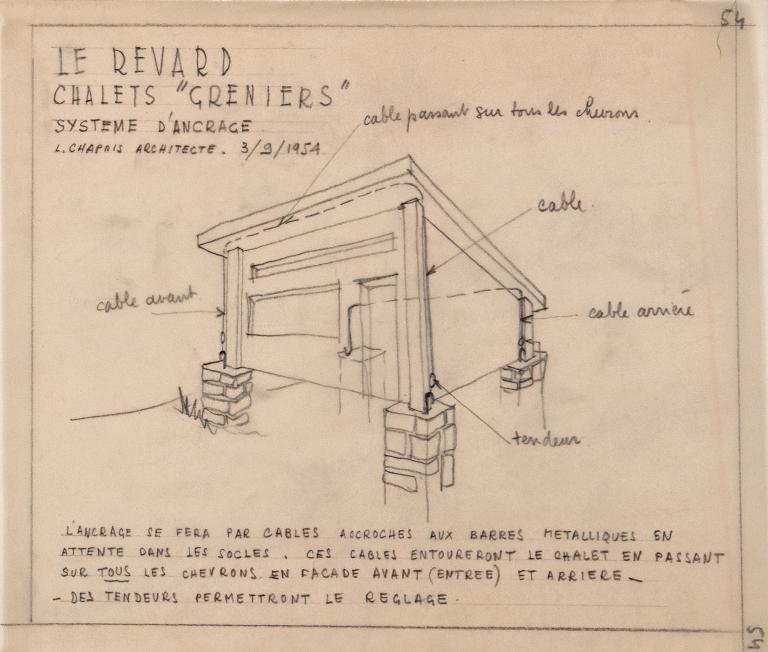 54
LE REVARD
CHALETS "GRENIERS"
SYSTEME D'ANCRAGE
L. CHAPPIS ARCHITECTE. 3/9/1954
cable passant sur tous les chevrons.
cable.
cable avant
cable arrière
tendeur
L'ANCRAGE SE FERA PAR CABLES ACCROCHES AUX BARRES METALLIQUES EN
ATTENTE DANS LES SOCLES. CES CABLES ENTOURERONT LE CHALET EN PASSANT
SUR TOUS LES CHEVRONS EN FACADE AVANT (ENTREE) ET ARRIERE_
_ DES TENDEURS PERMETTRONT LE REGLAGE.
54